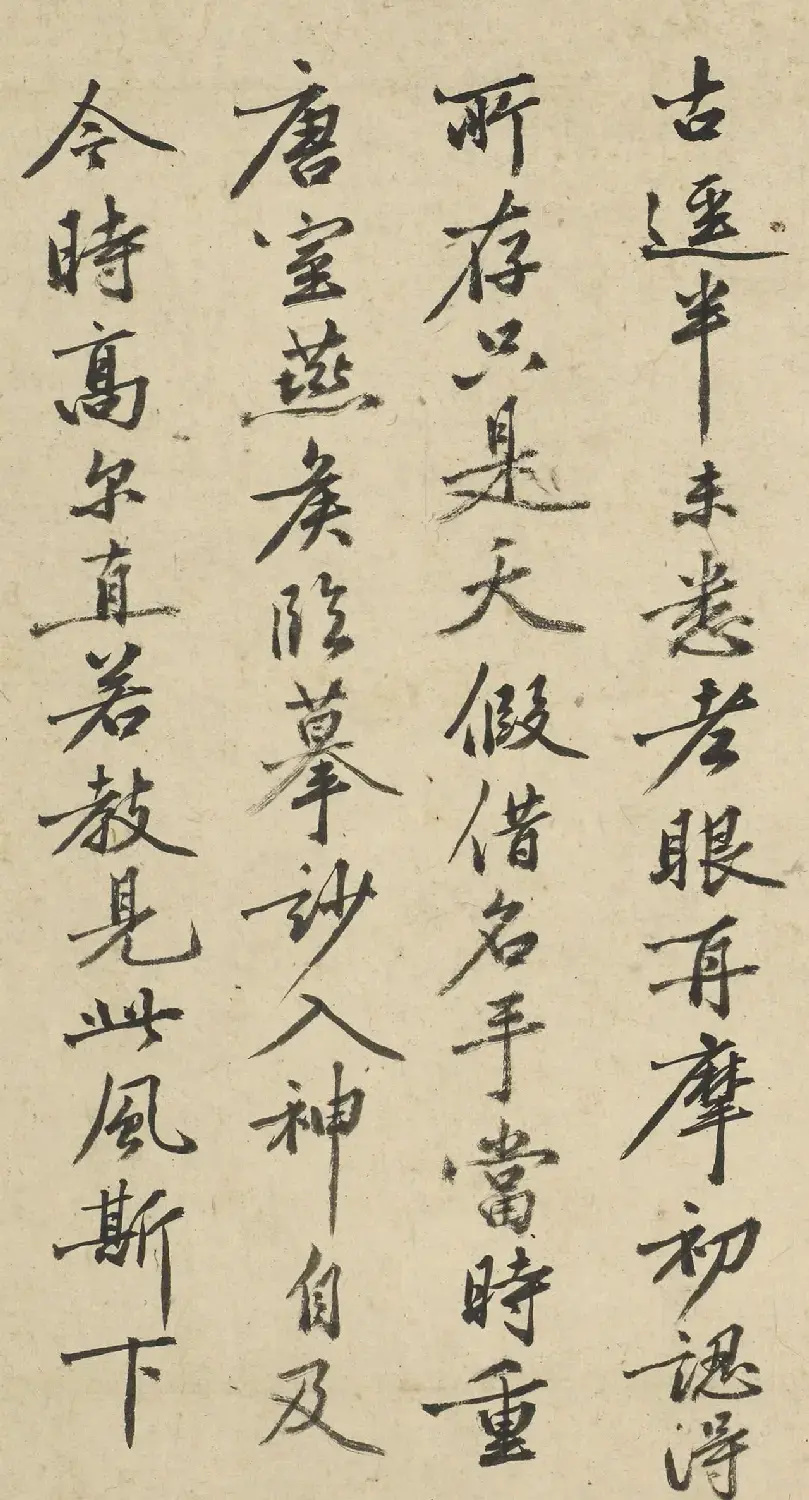 古逕半未悉老眼再摩初認得
所存只是天假借名手當時重
唐室燕矦臨摹訬入神自及
今時高尔直若教見此風斯下